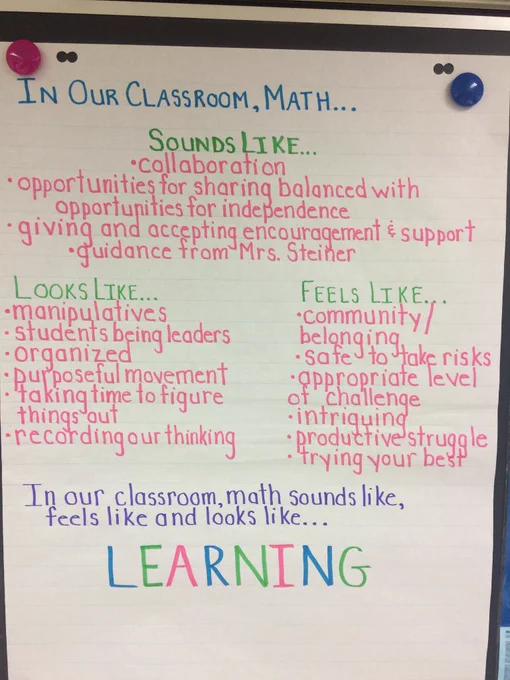 In Our Classroom, Math...
Sounds Like...
•collaboration
•opportunities for sharing balanced with
opportunities for independence
•giving and accepting encouragement & support
•guidance from Mrs. Steiner
Looks Like...
•manipulatives
•students being leaders
•organized
•purposeful movement
•taking time to figure
things out
•recording our thinking
Feels Like...
•community/
belonging
•safe to take risks
•appropriate level
of challenge
•intriguing
•productive struggle
•trying your best
In our classroom, math sounds like,
feels like and looks like...
LEARNING